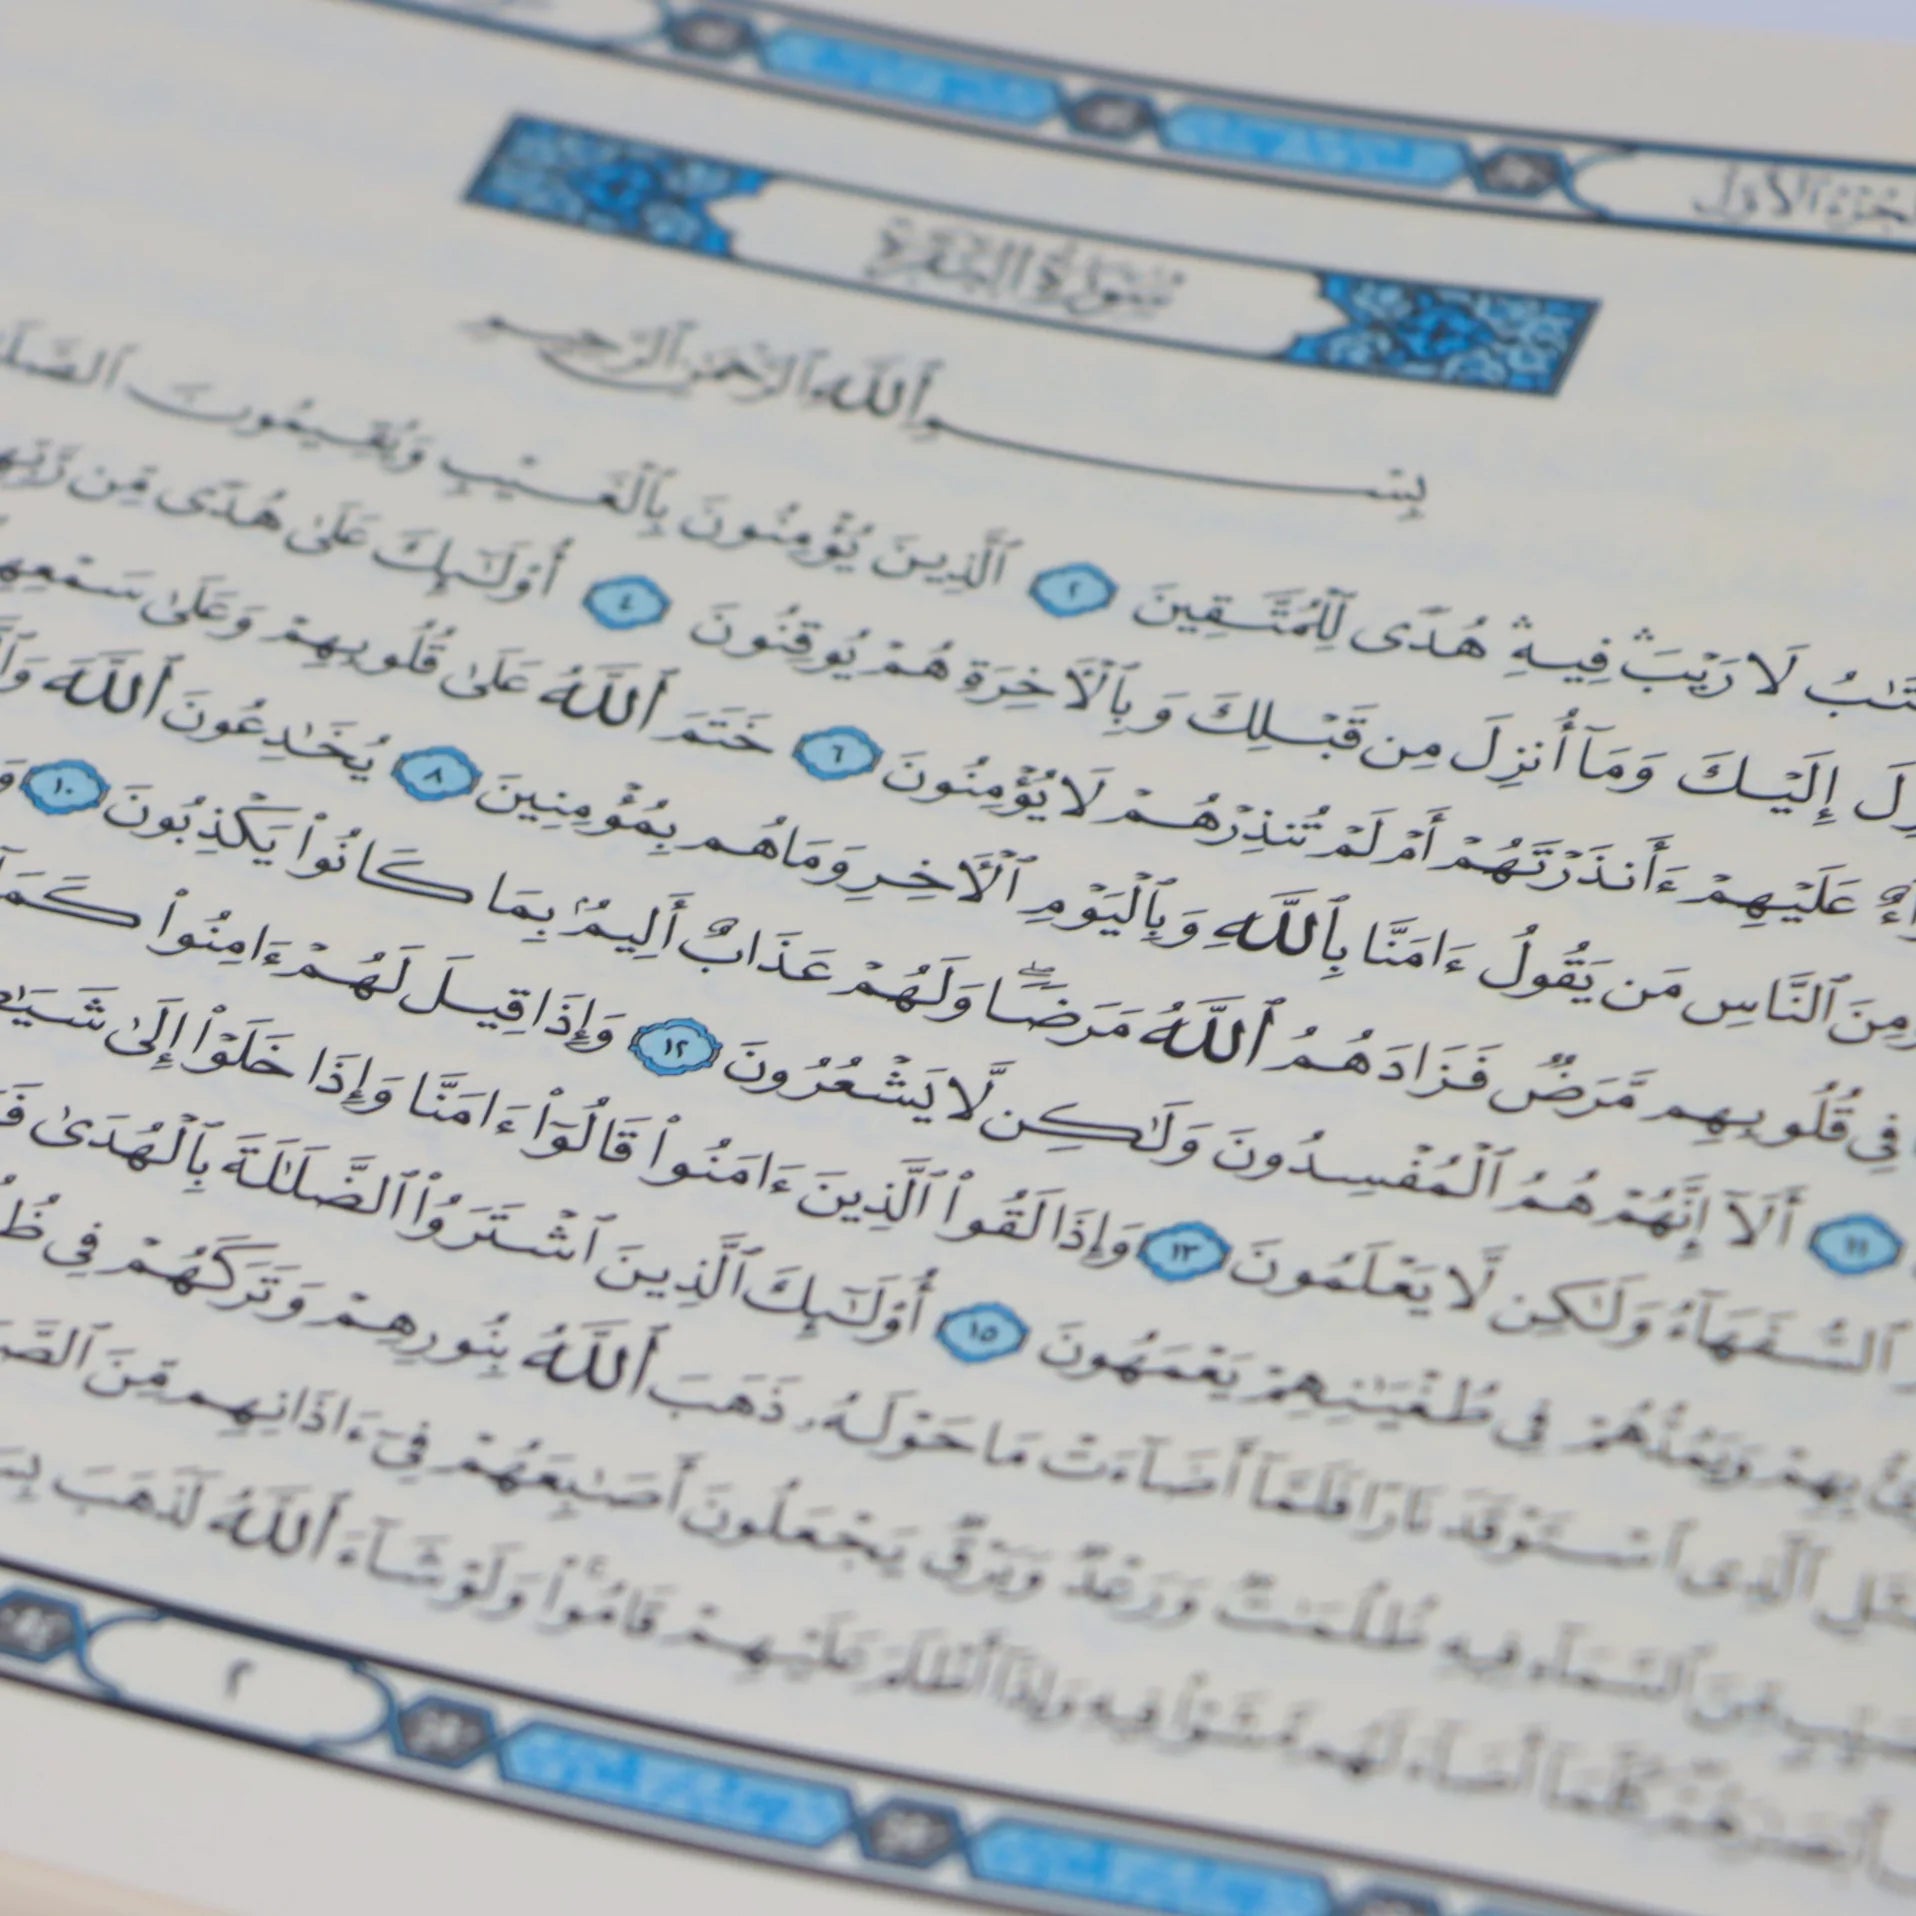 الجزء الأول
سورة البقرة
بِسْمِ ٱللَّهِ ٱلرَّحْمَٰنِ ٱلرَّحِيمِ
لَا رَيْبَ ۛ فِيهِ ۛ هُدًى لِّلْمُتَّقِينَ ٢ ٱلَّذِينَ يُؤْمِنُونَ بِٱلْغَيْبِ وَيُقِيمُونَ
إِلَيْكَ وَمَآ أُنزِلَ مِن قَبْلِكَ وَبِٱلْـَٔاخِرَةِ هُمْ يُوقِنُونَ ٤ أُو۟لَٰٓئِكَ عَلَىٰ هُدًى مِّن
عَلَيْهِمْ ءَأَنذَرْتَهُمْ أَمْ لَمْ تُنذِرْهُمْ لَا يُؤْمِنُونَ ٦ خَتَمَ ٱللَّهُ عَلَىٰ قُلُوبِهِمْ وَعَلَىٰ
ٱلنَّاسِ مَن يَقُولُ ءَامَنَّا بِٱللَّهِ وَبِٱلْيَوْمِ ٱلْـَٔاخِرِ وَمَا هُم بِمُؤْمِنِينَ ٨ يُخَٰدِعُونَ ٱللَّهَ
فِى قُلُوبِهِم مَّرَضٌ فَزَادَهُمُ ٱللَّهُ مَرَضًا ۖ وَلَهُمْ عَذَابٌ أَلِيمٌۢ بِمَا كَانُوا۟ يَكْذِبُونَ ١٠
١١ أَلَآ إِنَّهُمْ هُمُ ٱلْمُفْسِدُونَ وَلَٰكِن لَّا يَشْعُرُونَ ١٢ وَإِذَا قِيلَ لَهُمْ ءَامِنُوا۟
ٱلسُّفَهَآءُ وَلَٰكِن لَّا يَعْلَمُونَ ١٣ وَإِذَا لَقُوا۟ ٱلَّذِينَ ءَامَنُوا۟ قَالُوٓا۟ ءَامَنَّا وَإِذَا خَلَوْا۟ إِلَىٰ
بِهِمْ وَيَمُدُّهُمْ فِى طُغْيَٰنِهِمْ يَعْمَهُونَ ١٥ أُو۟لَٰٓئِكَ ٱلَّذِينَ ٱشْتَرَوُا۟ ٱلضَّلَٰلَةَ بِٱلْهُدَىٰ
ٱلَّذِى ٱسْتَوْقَدَ نَارًا فَلَمَّآ أَضَآءَتْ مَا حَوْلَهُۥ ذَهَبَ ٱللَّهُ بِنُورِهِمْ وَتَرَكَهُمْ فِى
مِّنَ ٱلسَّمَآءِ فِيهِ ظُلُمَٰتٌ وَرَعْدٌ وَبَرْقٌ يَجْعَلُونَ أَصَٰبِعَهُمْ فِىٓ ءَاذَانِهِم مِّنَ
كُلَّمَآ أَضَآءَ لَهُم مَّشَوْا۟ فِيهِ وَإِذَآ أَظْلَمَ عَلَيْهِمْ قَامُوا۟ ۚ وَلَوْ شَآءَ ٱللَّهُ لَذَهَبَ
٢